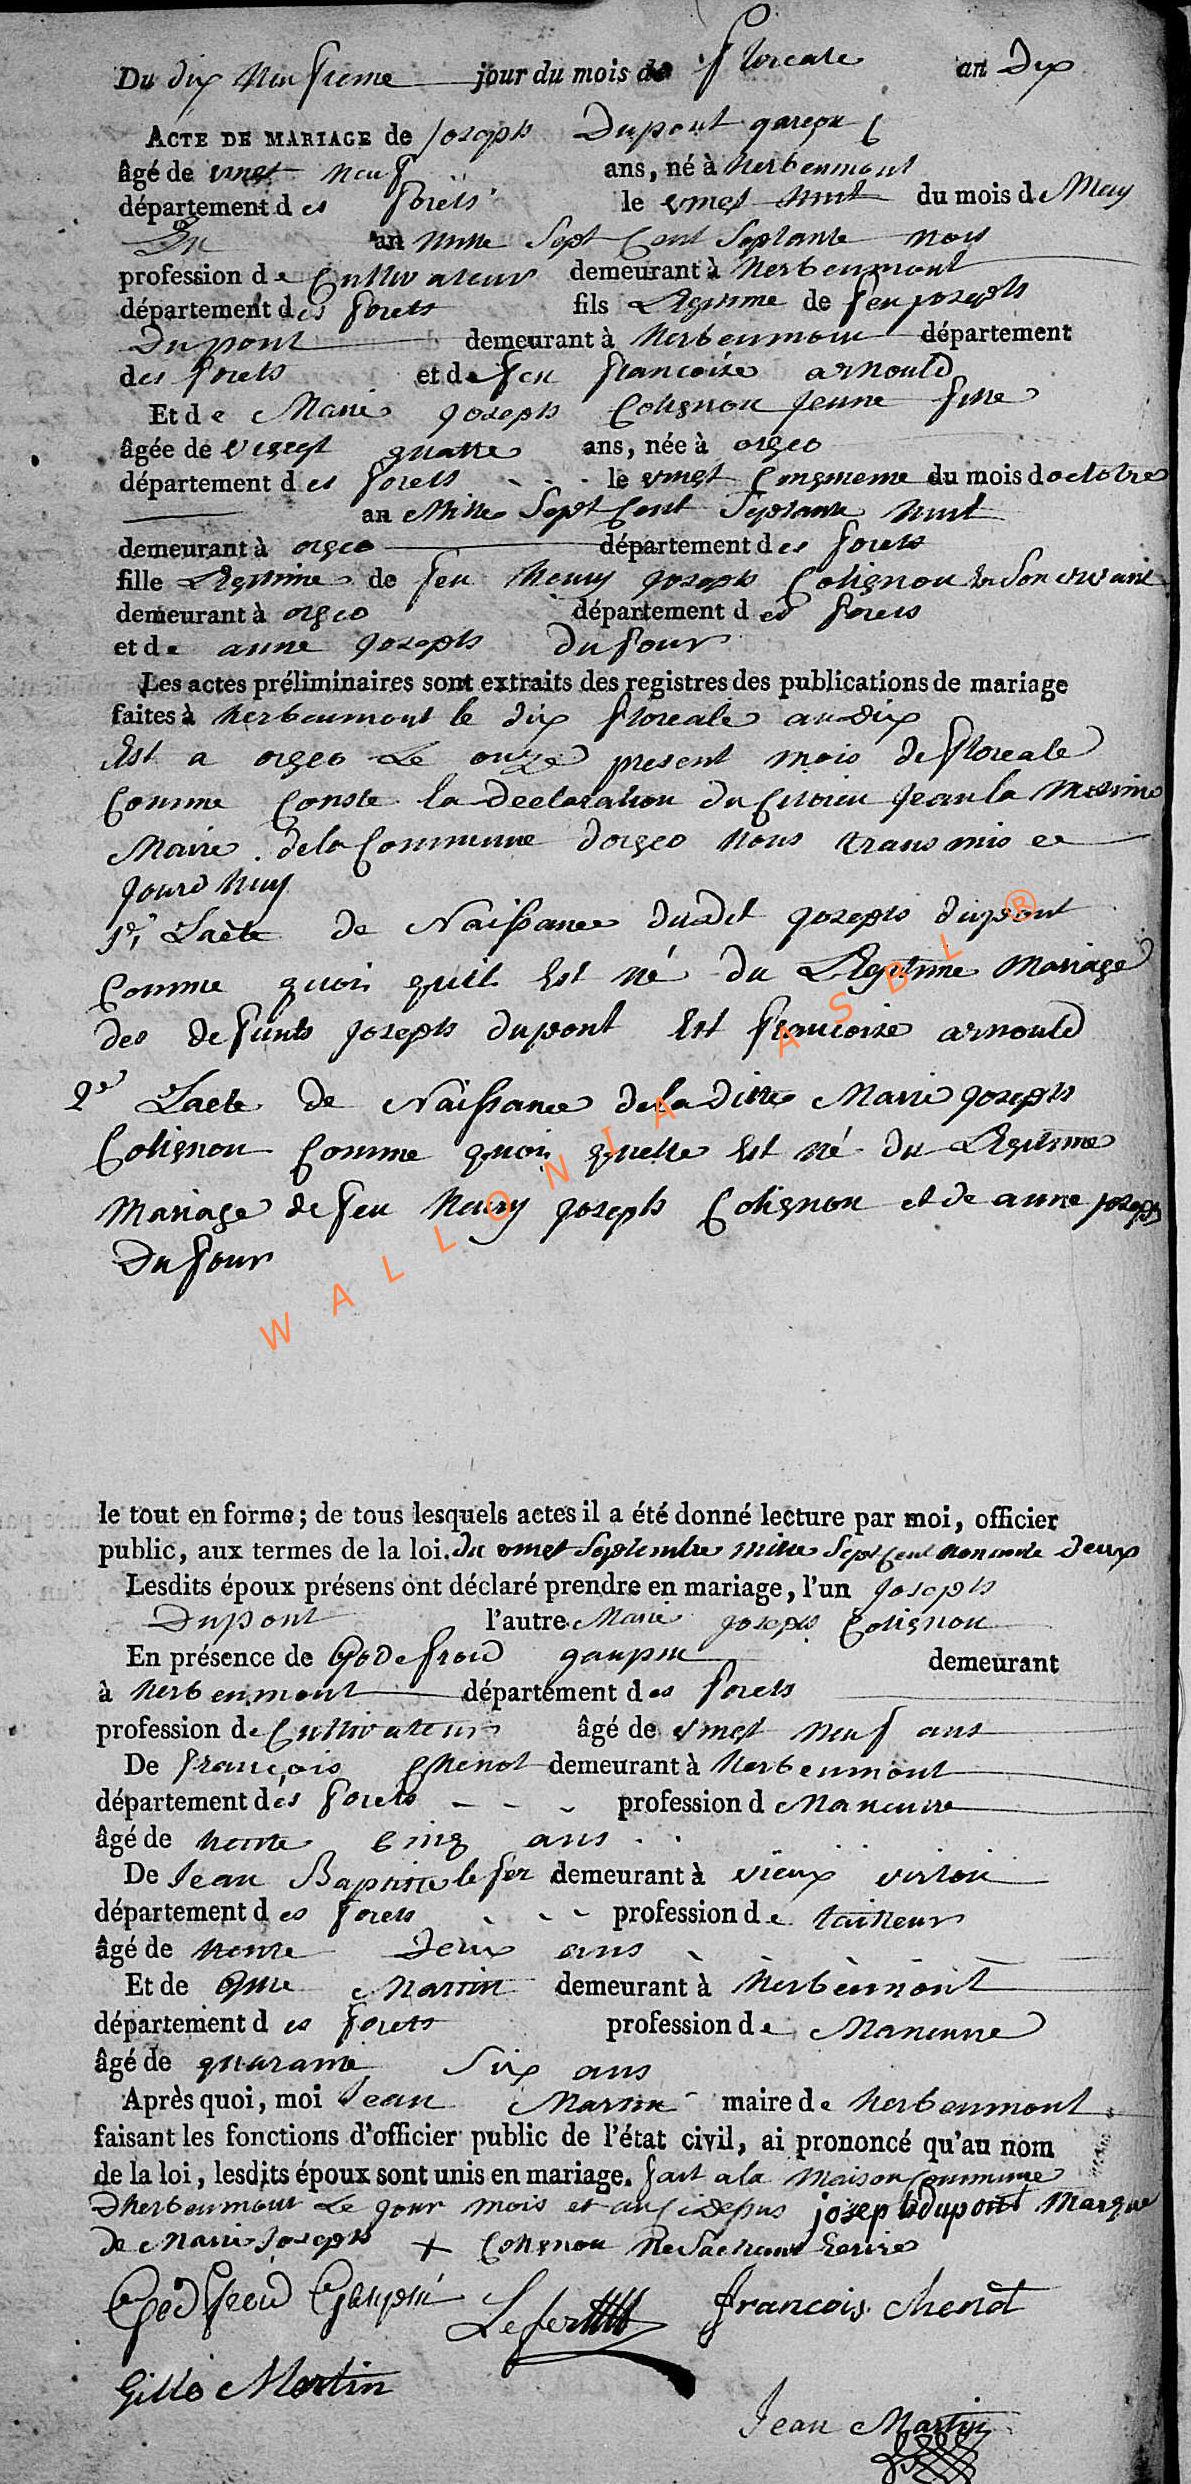 Du dix neufieme jour du mois de floreale an dix
ACTE DE MARIAGE de Joseph Dupont garçon
âgé de vingt neuf ans, né à herbeumont
département des forets le vingt huit du mois de May
Du an mille Sept Cent Septante trois
profession de Cultivateur demeurant à herbeumont
département des forets fils Legitime de feu joseph
Dupont demeurant à herbeumont département
des forets et de feu francoise arnould
Et de Marie joseph Colignon jeune fille
âgée de vingt quatre ans, née à orgeo
département des forets le vingt Cinqmeme du mois doctobre
an Mille Sept Cent Septante huit
demeurant à orgeo département des forets
fille Legitime de feu henry joseph Colignon en Son vivant
demeurant à orgeo département des forets
et de anne joseph Dufour
Les actes préliminaires sont extraits des registres des publications de mariage
faites à herbeumont le dix floreale an dix
Est a orgeo Le onze present mois de floreale
Comme Conste la declaration du Citoien jean la
Maire de la Commune dorgeo nous transmis ce
jourd huy
1e, Lacte de Naissance dudit joseph dupont
Comme quoi quil Est né du Legitime Mariage
des defunts joseph dupont Est francoise arnould
2e Lacte de Naissance de la ditte Marie joseph
Colignon Comme quoi quelle Est né du Legitime
Mariage de feu henry joseph Colignon et de anne joseph
Dufour
WALLONIA ASBL ®
le tout en forme; de tous lesquels actes il a été donné lecture par moi, officier
public, aux termes de la loi. du vingt Septembre mille Sept Cent nonante deux
Lesdits époux présens ont déclaré prendre en mariage, l'un joseph
Dupont l'autre Marie joseph Colignon
En présence de Godefroid gaupin demeurant
à herbeumont département des forets
profession de Cultivateur âgé de vingt neuf ans
De françois Chenot demeurant à herbeumont
département des forets profession d Maneuvre
âgé de trente Cinq ans
De Jean Baptiste lefer demeurant à vieux virton
département des forets profession de tailleur
âgé de trente Deux ans
Et de Gille Martin demeurant à herbeumont
département des forets profession de Maneuvre
âgé de quarante Six ans
Après quoi, moi Jean Martin maire de herbeumont
faisant les fonctions d'officier public de l'état civil, ai prononcé qu'au nom
de la loi, lesdits époux sont unis en mariage. fait a la Maison Commune
Dherbeumont Le jour mois et an Cidesus joseph dupont Marque
de Marie Joseph + Colignon ne Sachant Ecrire
Godfroid Gaupin Lefer francois Chenot
Gille Martin
Jean Martin